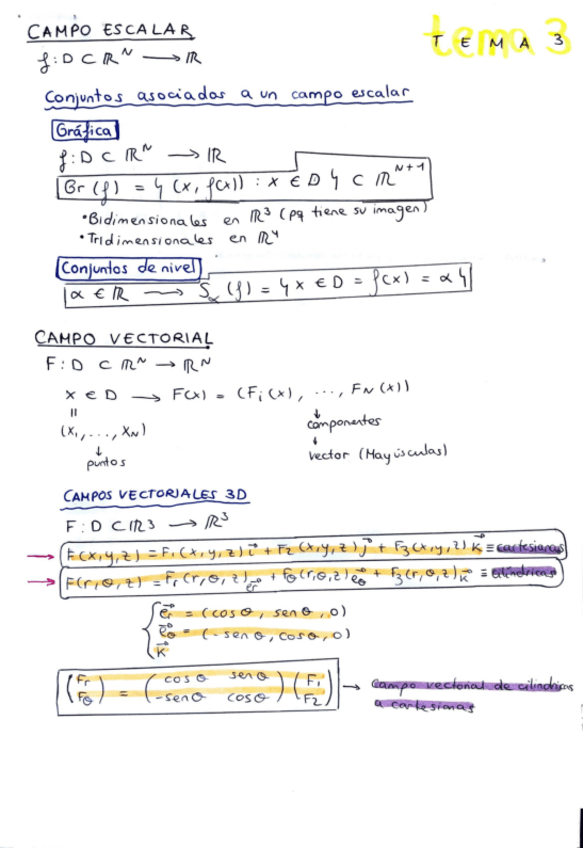 CAMPO ESCALAR
tema 3
TEMA 3
f: D ⊂ ℝᴺ → ℝ
Conjuntos asociados a un campo escalar
Gráfica
f: D ⊂ ℝᴺ → ℝ
Gr(f) = { (x, f(x)) : x ∈ D } ⊂ ℝᴺ⁺¹
•Bidimensionales en ℝ³ (pq tiene su imagen)
•Tridimensionales en ℝ⁴
Conjuntos de nivel
α ∈ ℝ → Sα(f) = { x ∈ D = f(x) = α }
CAMPO VECTORIAL
F: D ⊂ ℝᴺ → ℝᴺ
x ∈ D → F(x) = (F₁(x), ..., F_N(x))
=
↓
(x₁, ..., x_N)
componentes
↓
↓
puntos
vector (Mayúsculas)
CAMPOS VECTORIALES 3D
F: D ⊂ ℝ3 → ℝ³
→ F(x,y,z) = F₁(x,y,z) i⃗ + F₂(x,y,z) j⃗ + F₃(x,y,z) k⃗ ≡ cartesianas
→ F(r,θ,z) = Fr(r,θ,z) e⃗r + Fθ(r,θ,z) e⃗θ + F₃(r,θ,z) k⃗ ≡ cilíndricas
{ e⃗r = (cosθ, senθ, 0)
e⃗θ = (-senθ, cosθ, 0)
k⃗
(Fr Fθ) = (cosθ senθ -senθ cosθ) (F₁ F₂) → Campo vectorial de cilindricas
a cartesianas